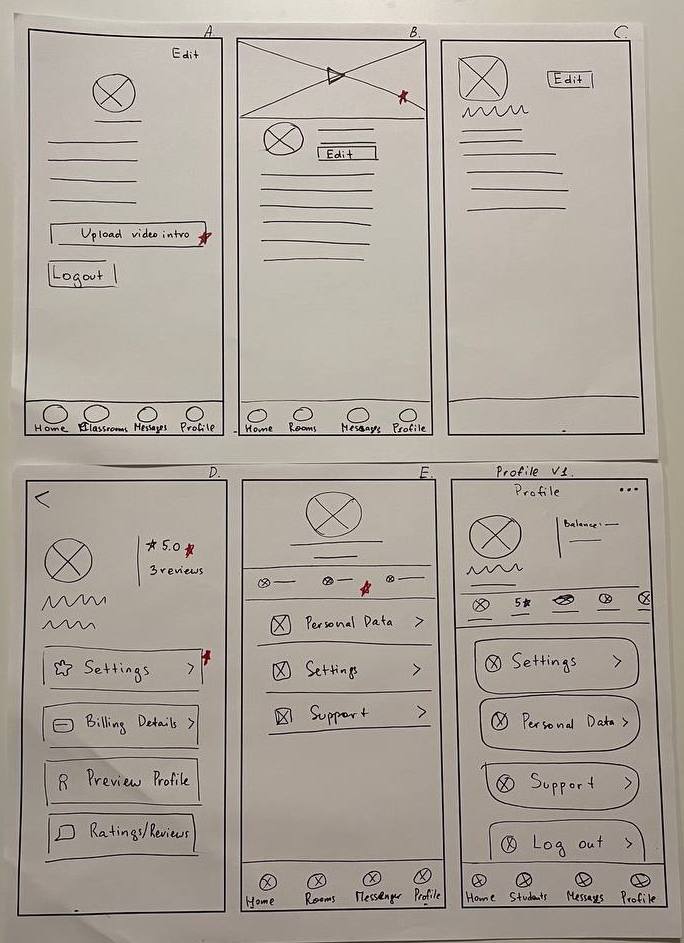 A.
Edit
Upload video intro
Logout
Home Classrooms Messages Profile
B.
Edit
Home Rooms Messages Profile
C.
Edit
D.
<
★ 5.0
3 reviews
Settings >
Billing Details >
Preview Profile
Ratings/Reviews
E.
Personal Data >
Settings >
Support >
Home Rooms Messenger Profile
Profile V1.
Profile ...
Balance: —
5★
Settings >
Personal Data >
Support >
Log out >
Home Students Messages Profile